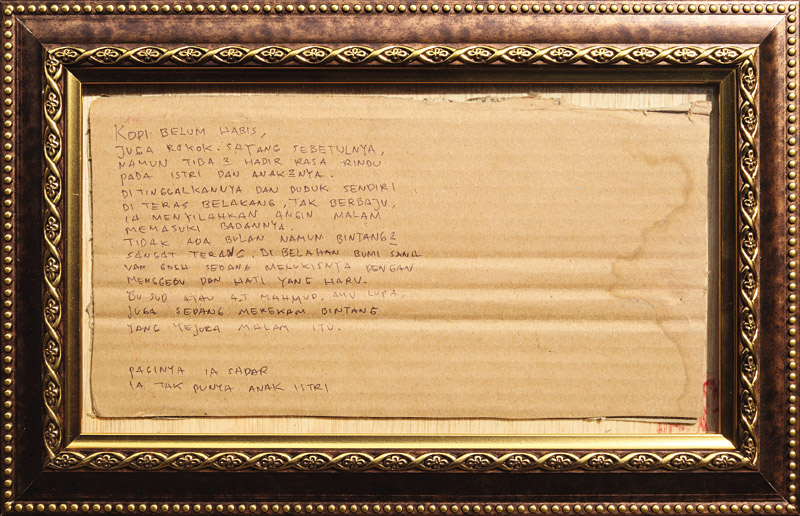 KOPI BELUM HABIS,
JUGA ROKOK. SAYANG SEBETULNYA,
NAMUN TIBA2 HADIR RASA RINDU
PADA ISTRI DAN ANAK2NYA.
DITINGGALKANNYA DAN DUDUK SENDIRI
DI TERAS BELAKANG, TAK BERBAJU,
IA MENYILAHKAN ANGIN MALAM
MEMASUKI BADANNYA.
TIDAK ADA BULAN NAMUN BINTANG2
SANGAT TERANG, DI BELAHAN BUMI SANA
VAN GOGH SEDANG MELUKISNYA DENGAN
MENGGEBU DAN HATI YANG HARU.
BU SUD ATAU AT MAHMUD, AKU LUPA,
JUGA SEDANG MEREKAM BINTANG
YANG KEJORA MALAM ITU.
PAGINYA IA SADAR
IA TAK PUNYA ANAK ISTRI